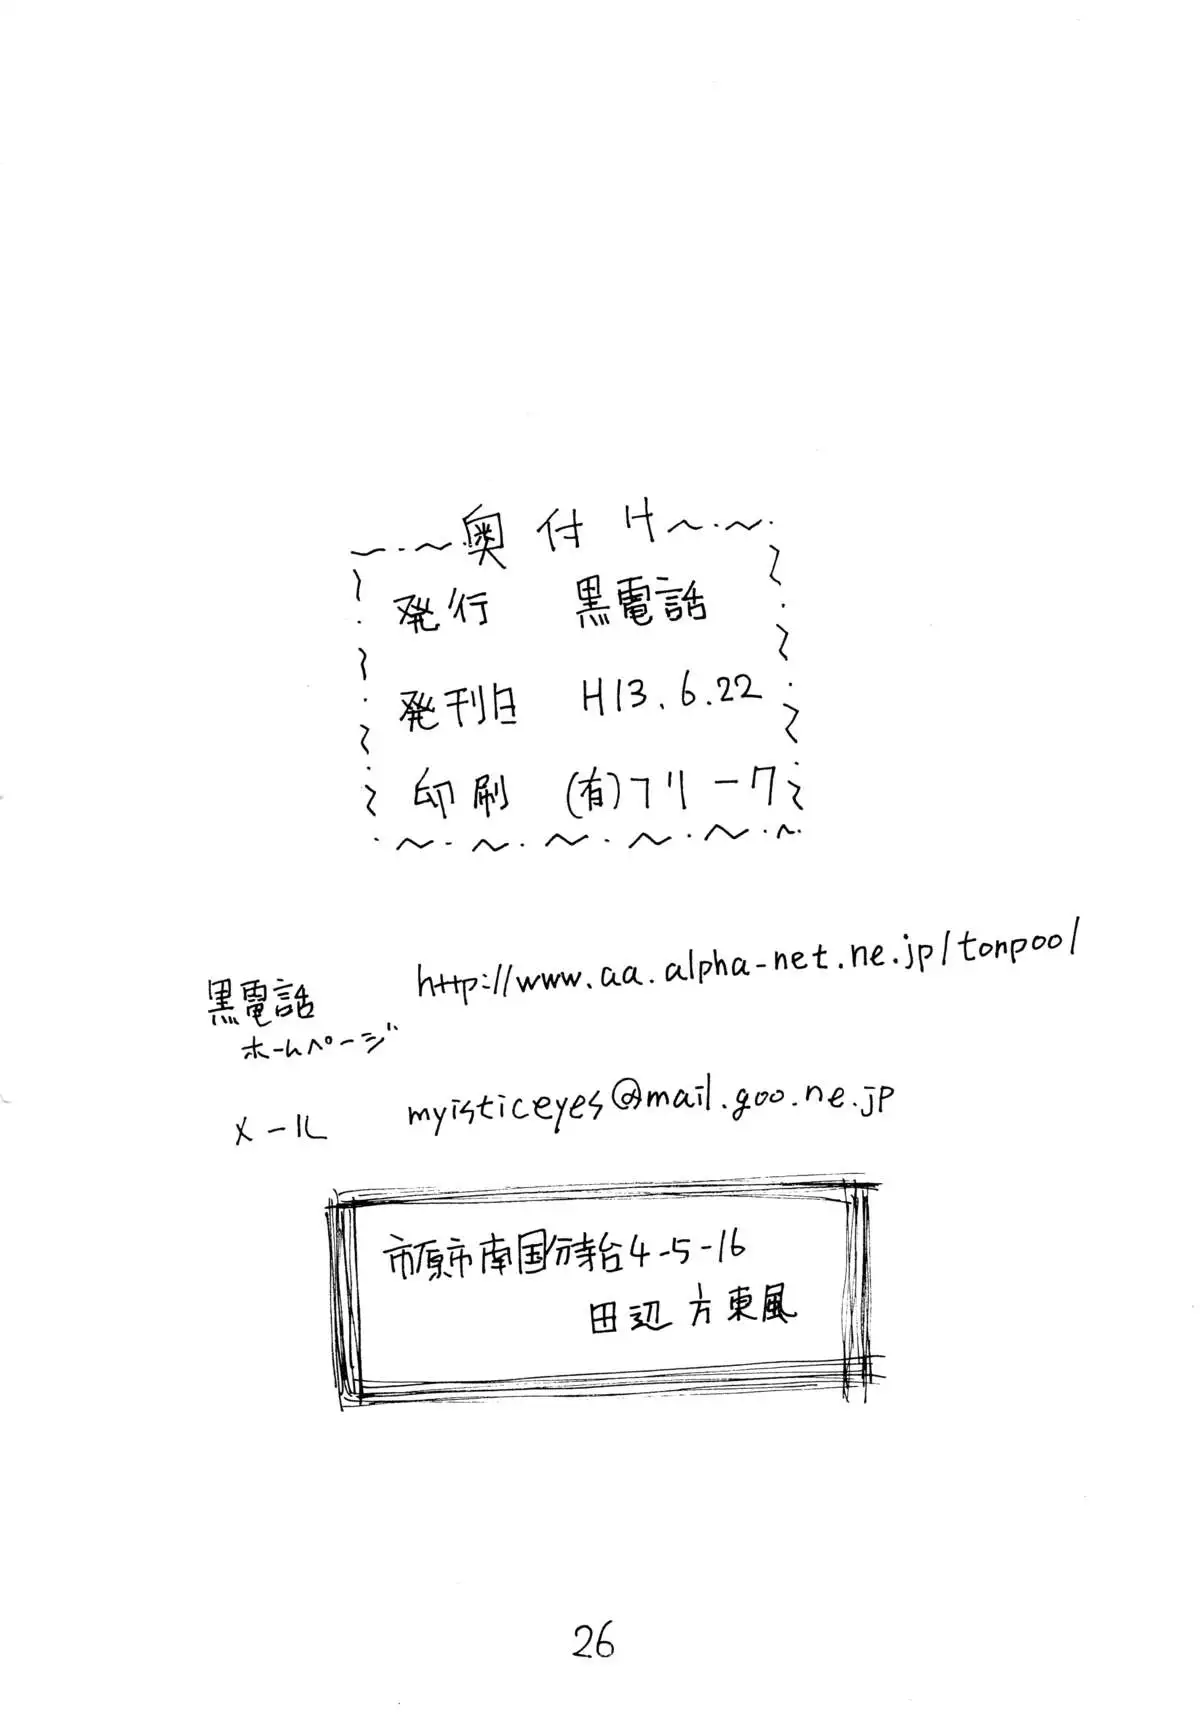 奥付け
発行 黒電話
発刊日 H13.6.22
印刷 (有)フリーク
黒電話 http://www.aa.alpha-net.ne.jp/tonpool
ホームページ
メール myisticeyes@mail.goo.ne.jp
市原市南国分寺台4-5-16
田辺 方東風
26